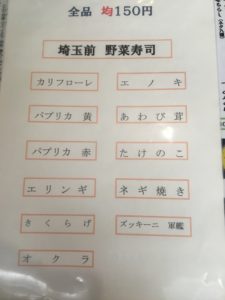 全品 均150円
埼玉前 野菜寿司
カリフローレ
エノキ
パプリカ 黄
あわび茸
パプリカ 赤
たけのこ
エリンギ
ネギ焼き
きくらげ
ズッキーニ 軍艦
オクラ